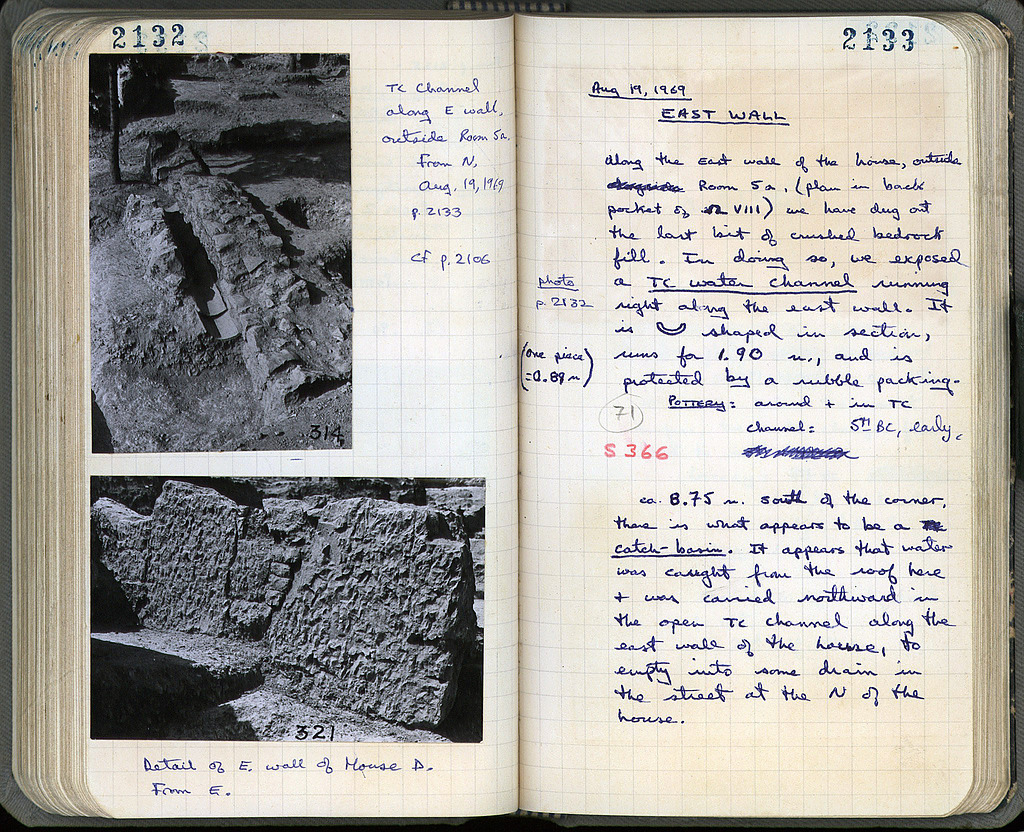 2132
TC Channel
along E wall,
outside Room 5a.
From N,
Aug. 19, 1969
p. 2133
cf p. 2106
314
321
Detail of E. wall of House D.
From E.
2133
Aug 19, 1969
EAST WALL
Along the East wall of the house, outside
Room 5a, (plan in back
pocket of Ω VIII) we have dug out
the last bit of crushed bedrock
fill. In doing so, we exposed
a TC water channel running
right along the east wall. It
is shaped in section,
runs for 1.90 m., and is
protected by a rubble packing.
photo
p. 2132
(one piece
= 0.89 m)
71
POTTERY: around + in TC
Channel: 5TH BC, early.
S 366
ca. 8.75 m. south of the corner,
there is what appears to be a
catch-basin. It appears that water
was caught from the roof here
+ was carried northward in
the open TC Channel along the
east wall of the house, to
empty into some drain in
the street at the N of the
house.